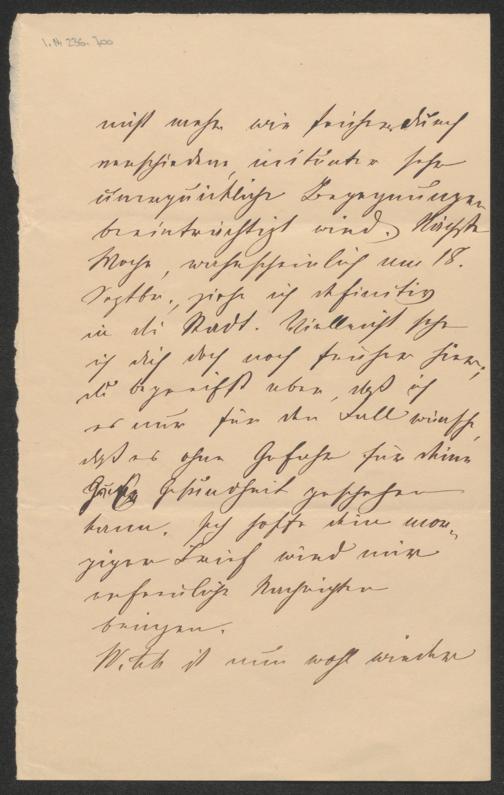 I. N. 236.700
nicht mehr wie früher durch
verschiedene, mitunter sehr
unerquickliche Begegnungen
beeinträchtigt wird.) Nächste
Woche, wahrscheinlich am 18.
Septbr., ziehe ich definitiv
in die Stadt. Vielleicht sehe
ich dich doch noch früher hier;
du begreifst aber, daß ich
es nur für den Fall wünsche,
daß es ohne Gefahr für deine
Gesundheit geschehen
kann. Ich hoffe dein mor-
giger Brief wird mir
erfreuliche Nachrichten
bringen.
ist nun wohl wieder